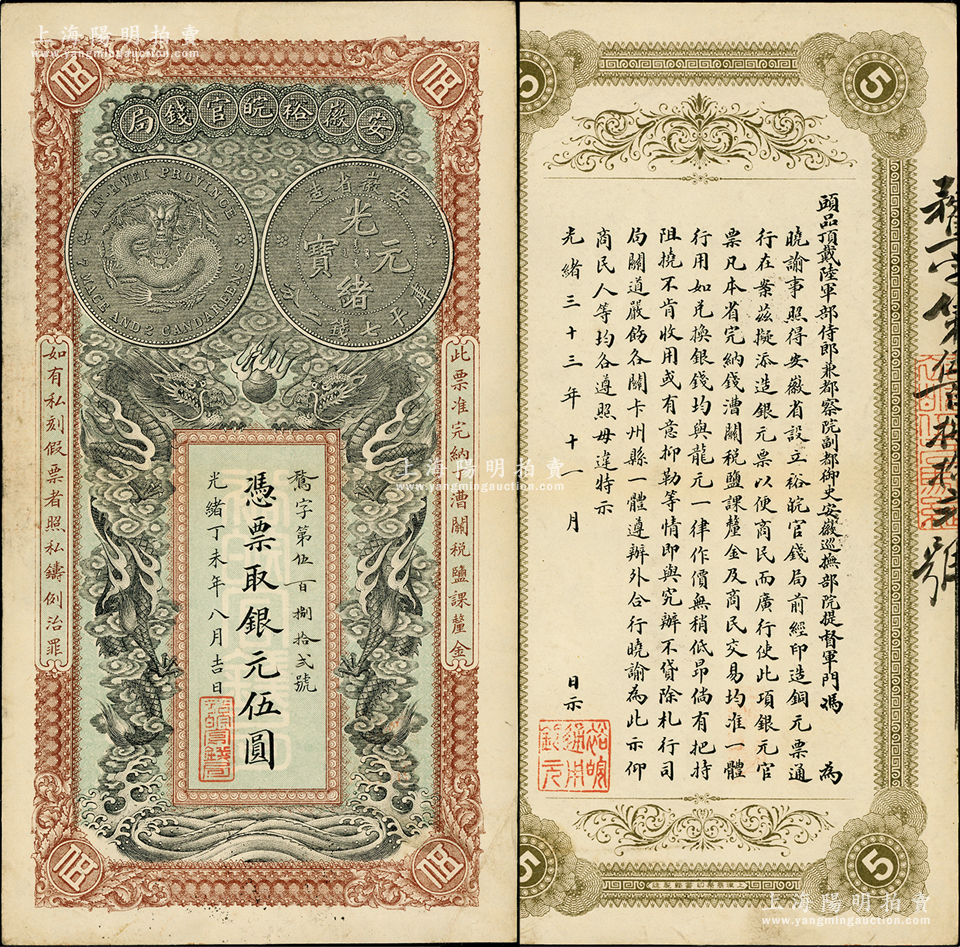 上海陽明拍賣
www.yangmingauction.com
伍
伍
安徽裕皖官錢局
AN-HVEI PROVINCE
7 MACE AND 2 CANDAREENS
安徽省造
光緒元寶
庫平七錢二分
此票准完納丁漕關稅鹽課釐金
如有私刻假票者照私鑄例治罪
字第伍百捌拾貳號
憑票取銀元伍圓
光緒丁未年八月吉日
裕皖官錢局
伍
伍
上海陽明拍賣
www.yangmingauction.com
5
5
頭品頂戴陸軍部侍郎兼都察院副都御史安徽巡撫部院提督軍門馮 為
曉諭事照得安徽省設立裕皖官錢局前經印造銅元票通
行在案茲擬添造銀元票以便商民而廣行使此項銀元官
票凡本省完納錢漕關稅鹽課釐金及商民交易均准一體
行用如兑換銀錢均與龍元一律作價無稍低昂倘有把持
阻撓不肯收用或有意抑勒等情即與究辦不貸除札行司
局關道嚴飭各關卡州縣一體遵辦外合行曉諭為此示仰
商民人等均各遵照毋違特示
光緒三十三年十一月 日示
裕皖
通用
銀元
5
5
上海陽明拍賣
www.yangmingauction.com